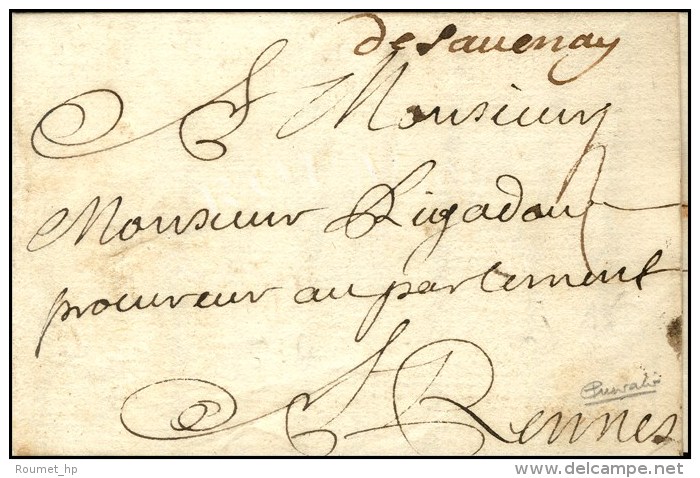 deSauenay
A Monsieur
Monsieur Rigadour
procureur au parlement
A Rennes
Roumet_hp
www.delcampe.net